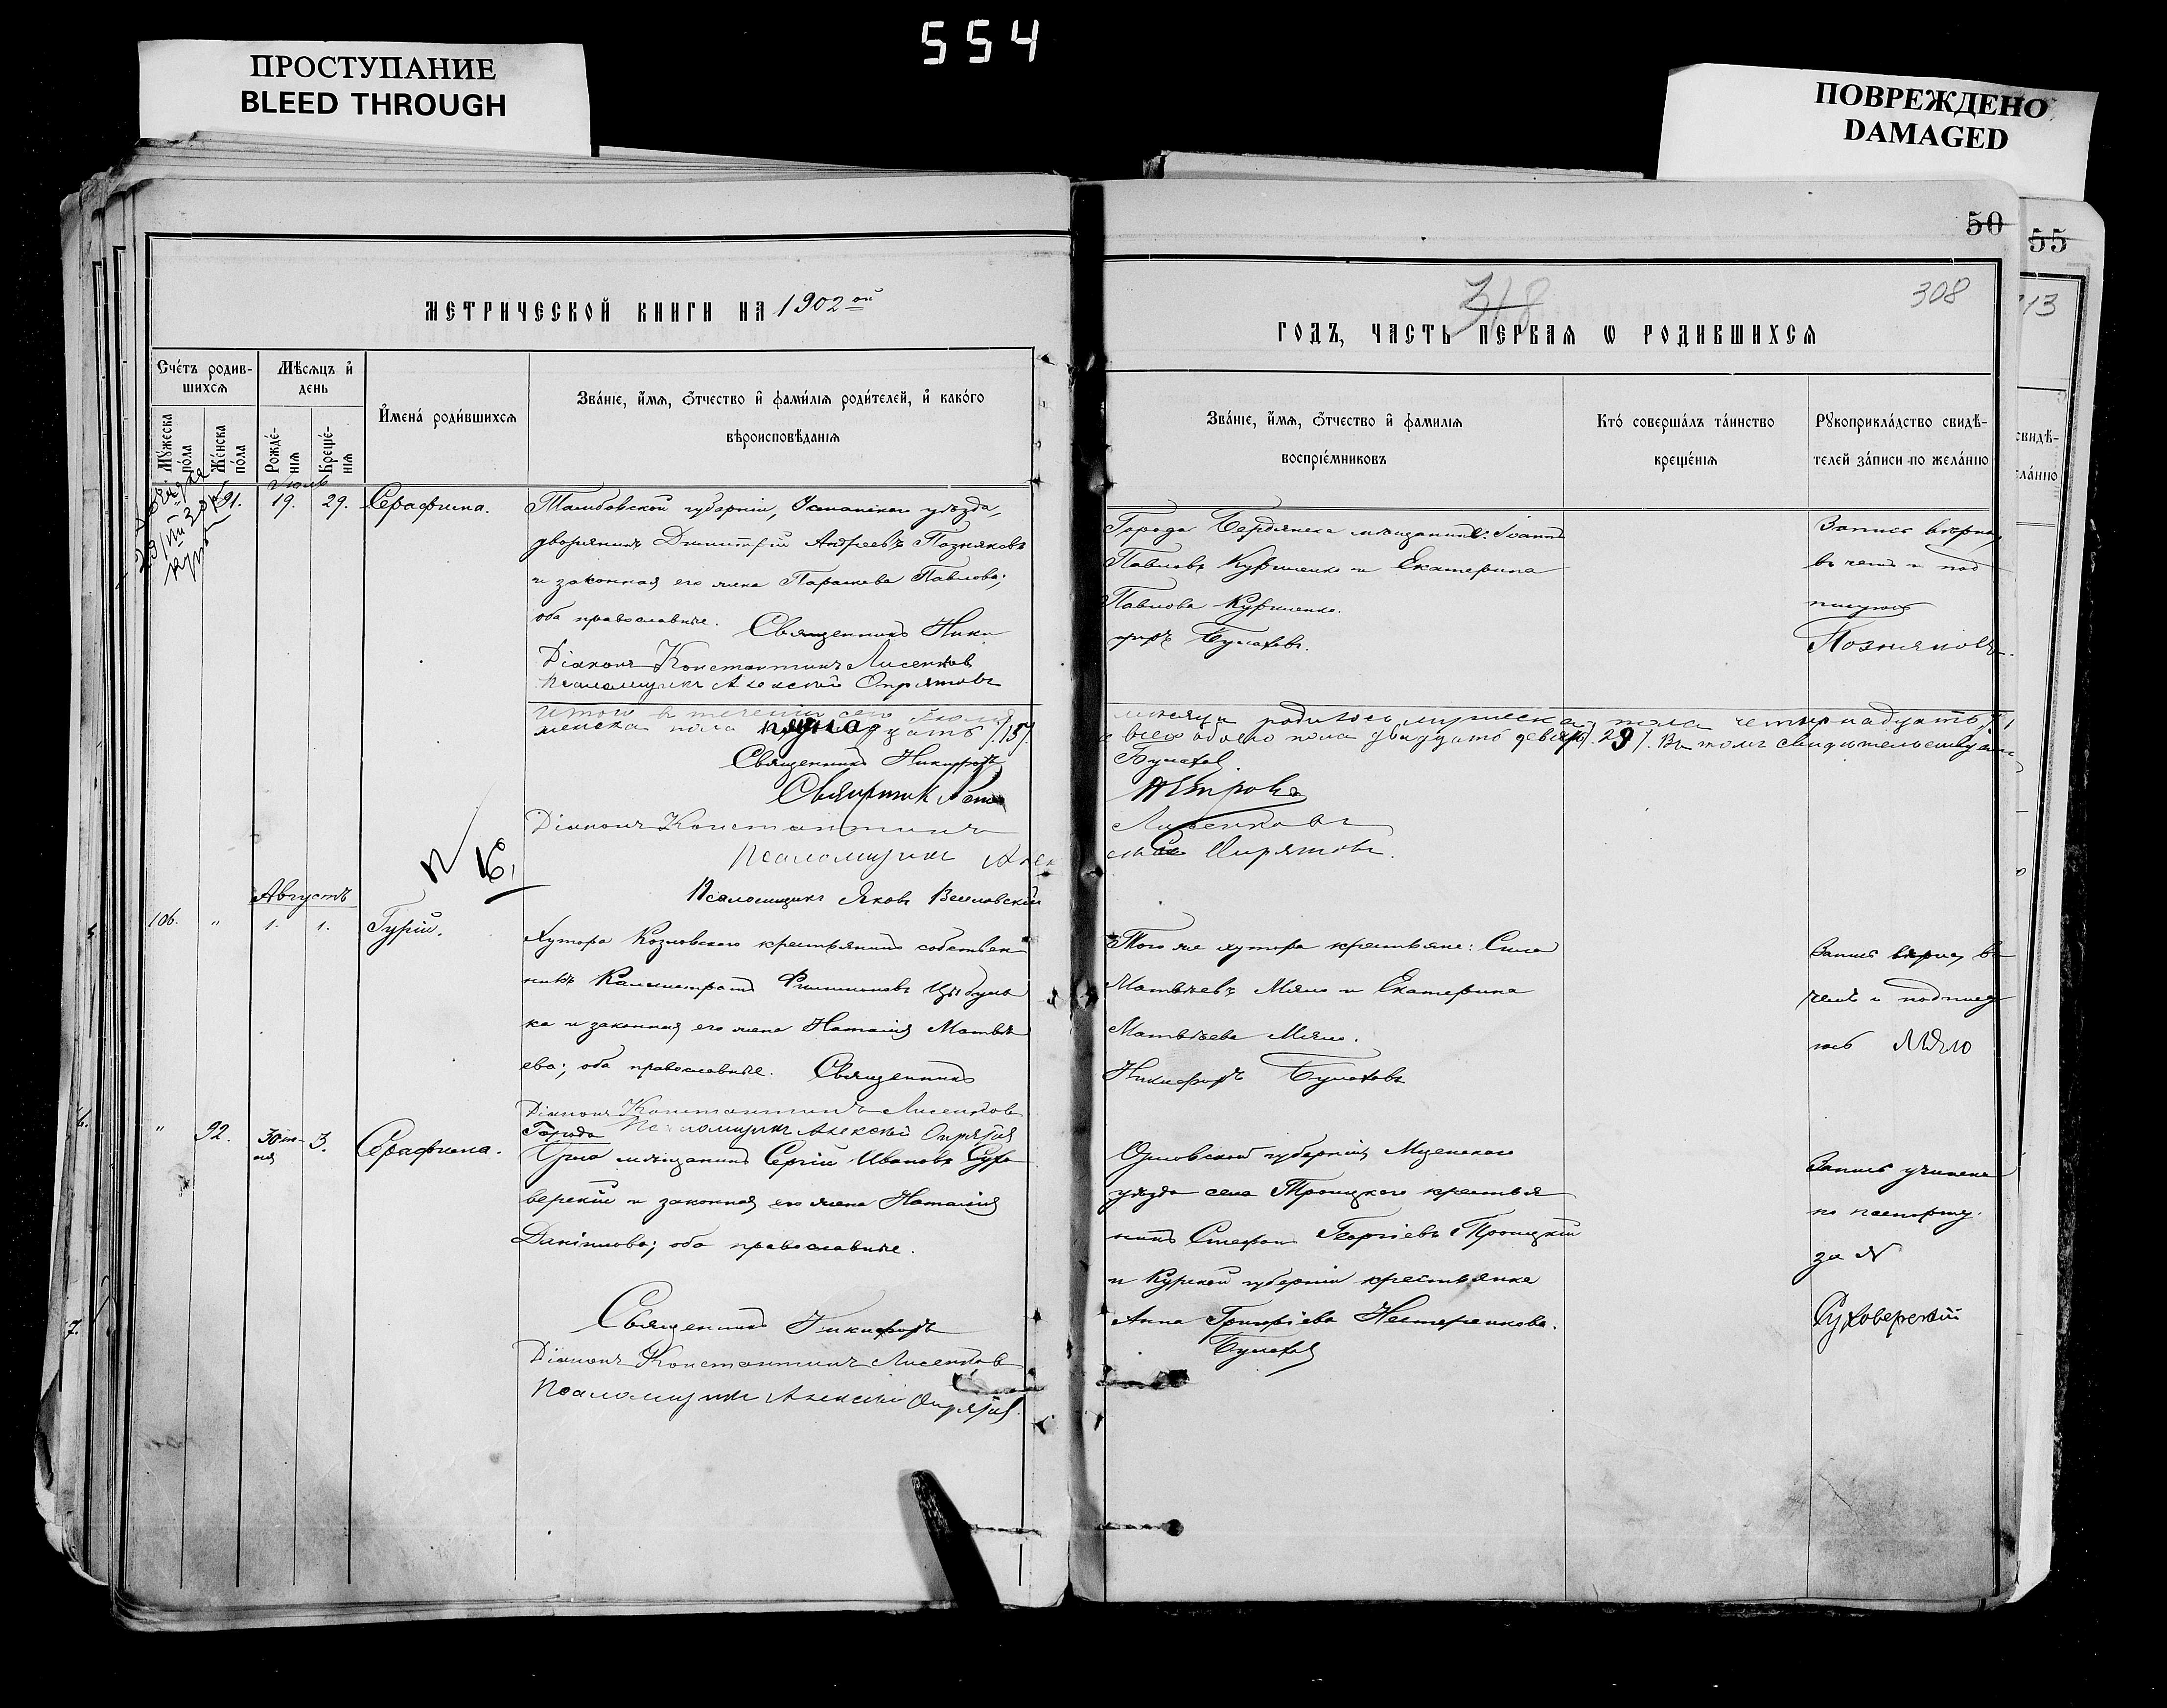 554
ПРОСТУПАНИЕ
BLEED THROUGH
ПОВРЕЖДЕНО
DAMAGED
50
55
МЕТРИЧЕСКОЙ КНИГИ НА 1902 ой
318
308
ГОДЪ, ЧАСТЬ ПЕРВАЯ Ѡ РОДИВШИХСЯ
Счетъ родив-
шихся
Мѣсяцъ и
день
Мужеска
пола
Женска
пола
Рожде-
нія
Креще-
нія
Имена родившихся
Званіе, имя, отчество и фамилія родителей, и какого
вѣроисповѣданія
Званіе, имя, отчество и фамилія
воспріемниковъ
Кто совершалъ таинство
крещенія
Рукоприкладство свидѣ-
телей записи по желанію
Іюль
91. 19. 29. Серафима.
Тамбовской губерніи, Усманскаго уѣзда,
дворянинъ Димитрій Андреевъ Позняковъ
и законная его жена Параскева Павлова;
оба православные. Священникъ Ники
Діаконъ Константинъ Лисенков
Псаломщикъ Алексій Опрятовъ
Города Бердянска мѣщанинъ: Іоаннъ
Павловъ Куриленко и Екатерина
Павлова Куриленко.
форъ Булаховъ.
Запись вѣрна,
въ чемъ и под
писуюсь
Позняковъ.
Итого в теченіи сего Іюля
женска пола пятнадцать /.15/.
Священникъ Никифоръ
Діаконъ Константинъ
Псаломщикъ Алек
Псаломщикъ Яковъ Веселовскій
мѣсяца родилось мужеска пола четырнадцать
а всего обоего пола двадцать девять /. 29 /. Въ томъ свидѣтельствуемъ
Булахов
Петрова
Лисенковъ
сій Опрятовъ.
N 16.
Августъ
106. " 1. 1. Гурій.
Хутора Козловскаго крестьянинъ собствен
никъ Калистратъ Филимоновъ Цыбуль
ка и законная его жена Наталія Матвѣ
ева; оба православные. Священникъ
Діаконъ Константинъ Лисенков
Псаломщикъ Алексій
Того же хутора крестьяне: Сила
Матвѣевъ Мяло и Екатерина
Матвѣева Мяло.
Никифоръ Булаховъ
Запись вѣрна, въ
чемъ и подпису
юсь Мяло
" 92. 30 іюля 3. Серафима.
Города
мѣщанинъ Сергій Ивановъ Сухо
верскій и законная его жена Наталія
Даніилова; оба православные.
Священникъ Никифоръ
Діаконъ Константинъ Лисенков
Псаломщикъ Алексій
Орловской губерніи, Мценскаго
уѣзда села Троицкаго крестья
нинъ Стефанъ Георгіевъ Троицкій
и Курской губерніи крестьянка
Анна Григоріева Нестеренкова.
Булахов
Запись учинена
по паспорту.
за N
Суховерскій